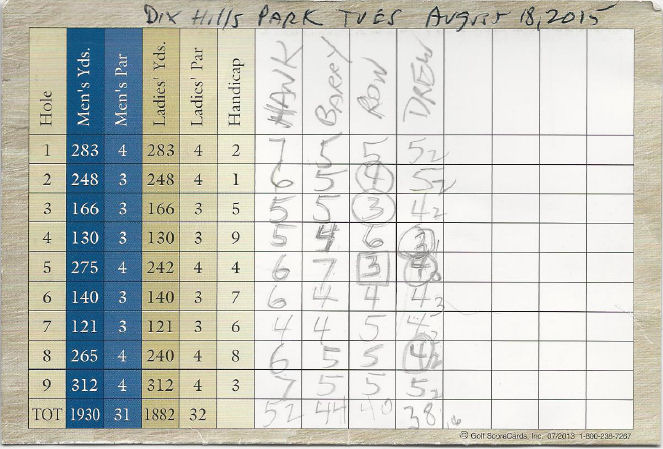 Dix Hills PARK TUES August 18, 2015
Hole Men's Yds. Men's Par Ladies' Yds. Ladies' Par Handicap HANK BARRY RON DREW
1 283 4 283 4 2 7 5 5 5 2
2 248 3 248 4 1 6 5 4 5 2
3 166 3 166 3 5 5 5 3 4 2
4 130 3 130 3 9 5 4 6 3 1
5 275 4 242 4 4 6 7 3 4
6 140 3 140 3 7 6 4 4 4 3
7 121 3 121 3 6 4 4 5 4 2
8 265 4 240 4 8 6 5 5 4 2
9 312 4 312 4 3 7 5 5 5 2
TOT 1930 31 1882 32 52 44 40 38 16
© Golf ScoreCards, Inc. 07/2013 1-800-238-7267